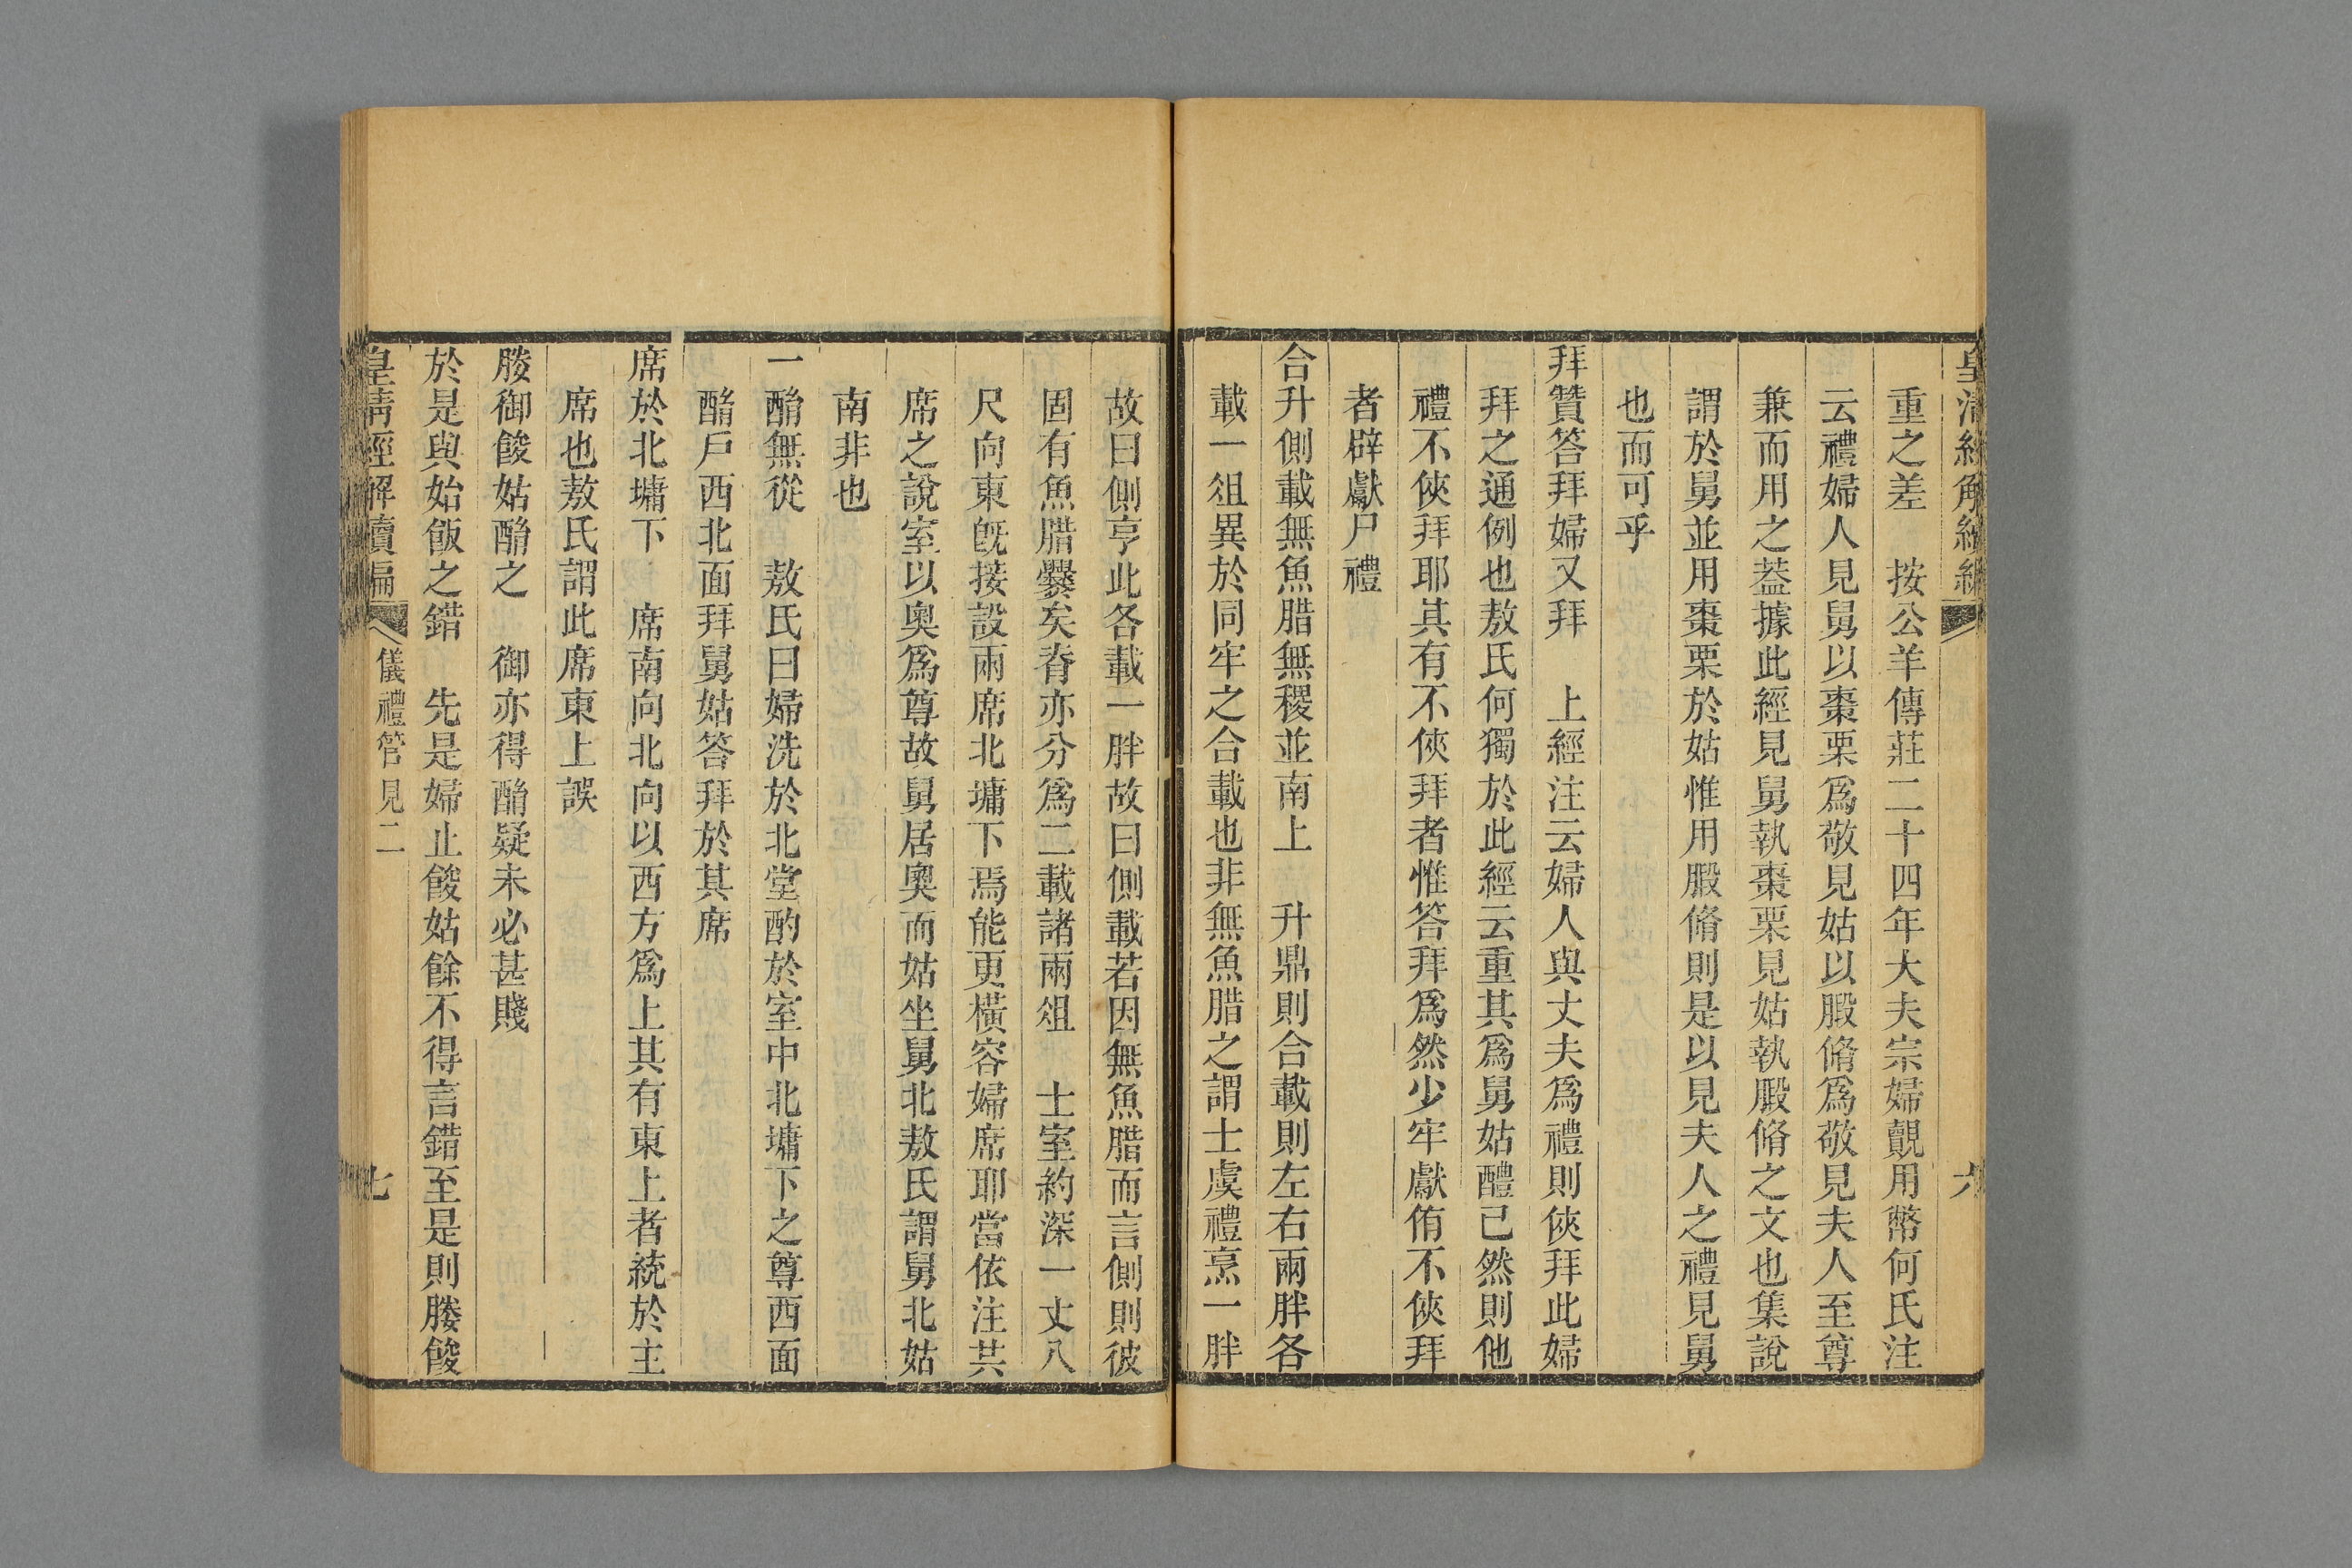 皇清經解續編
六
重之差　按公羊傳莊二十四年大夫宗婦覿用幣何氏注
云禮婦人見舅以棗栗爲敬見姑以腶脩爲敬見夫人至尊
兼而用之葢據此經見舅執棗栗見姑執腶脩之文也集說
謂於舅並用棗栗於姑惟用腶脩則是以見夫人之禮見舅
也而可乎
拜贊答拜婦又拜　上經注云婦人與丈夫爲禮則俠拜此婦
拜之通例也敖氏何獨於此經云重其爲舅姑醴己然則他
禮不俠拜耶其有不俠拜者惟答拜爲然少牢獻侑不俠拜
者辟獻尸禮
合升側載無魚腊無稷並南上　升鼎則合載則左右兩胖各
載一俎異於同牢之合載也非無魚腊之謂士虞禮烹一胖
故曰側亨此各載一胖故曰側載若因無魚腊而言側則彼
固有魚腊爨矣脊亦分爲二載諸兩俎　士室約深一丈八
尺向東旣接設兩席北墉下焉能更橫容婦席耶當依注共
席之說室以奧爲尊故舅居奧而姑坐舅北敖氏謂舅北姑
南非也
一酳無從　敖氏曰婦洗於北堂酌於室中北墉下之尊西面
酳戶西北面拜舅姑答拜於其席
席於北墉下　席南向北向以西方爲上其有東上者統於主
席也敖氏謂此席東上誤
媵御餕姑酳之　御亦得酳疑未必甚賤
於是與始飯之錯　先是婦止餕姑餘不得言錯至是則媵餕
皇清經解續編
儀禮管見二
七